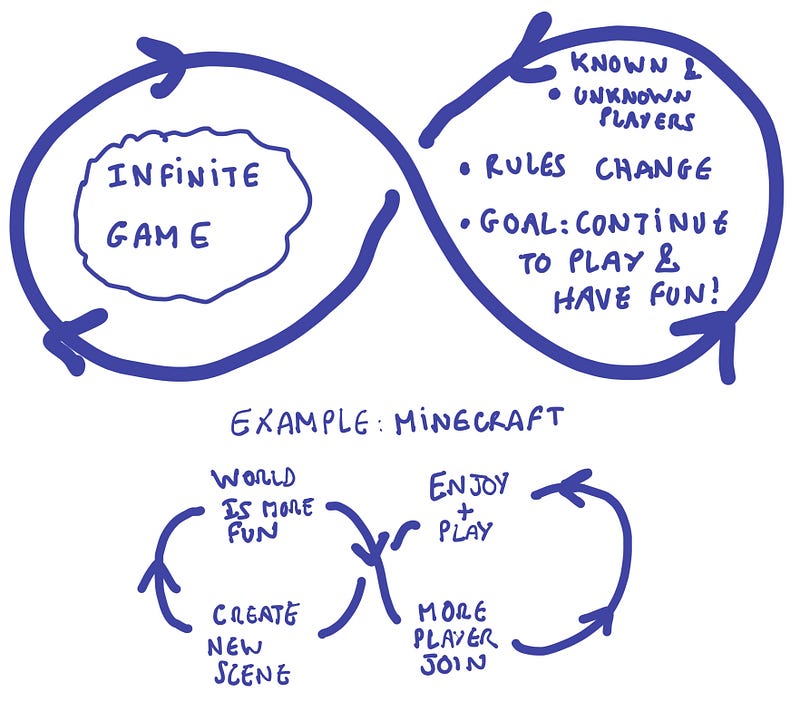 INFINITE
GAME
KNOWN &
• UNKNOWN
PLAYERS
• RULES CHANGE
• GOAL: CONTINUE
TO PLAY &
HAVE FUN!
EXAMPLE: MINECRAFT
WORLD
IS MORE
FUN
CREATE
NEW
SCENE
ENJOY
+
PLAY
MORE
PLAYER
JOIN